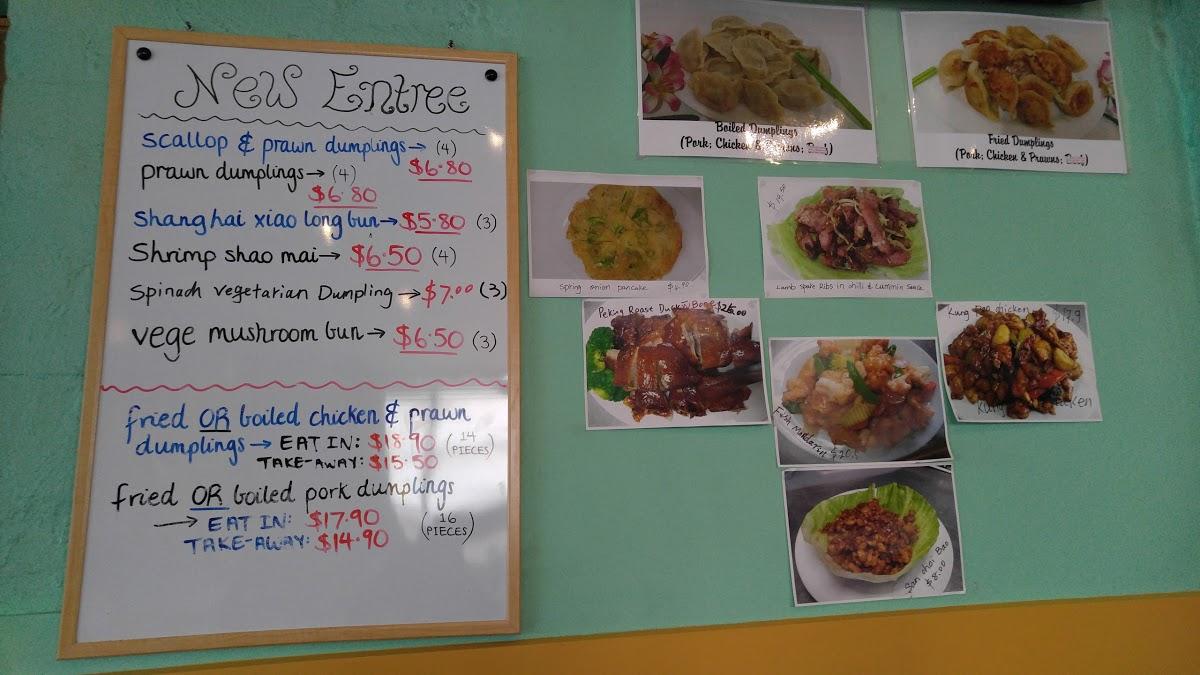 New Entree
scallop & prawn dumplings→ (4)
$6.80
prawn dumplings→ (4)
$6.80
Shanghai xiao long bun→ $5.80 (3)
Shrimp shao mai→ $6.50 (4)
Spinach vegetarian Dumpling →$7.00 (3)
vege mushroom bun→ $6.50 (3)
fried OR boiled chicken & prawn
dumplings→ EAT IN: $18.90 (14 PIECES)
TAKE-AWAY: $15.50
fried OR boiled pork dumplings
→ EAT IN: $17.90 (16 PIECES)
TAKE-AWAY: $14.90
Boiled Dumplings
(Pork; Chicken & Prawns;
Fried Dumplings
(Pork; Chicken & Prawns;
Spring onion pancake $6.90
Lamb spare Ribs in chili & Cummin Sauce
Peking Roast Duck
Kung Pao chicken
Fish Mandarin
San choi Bao
$8.00